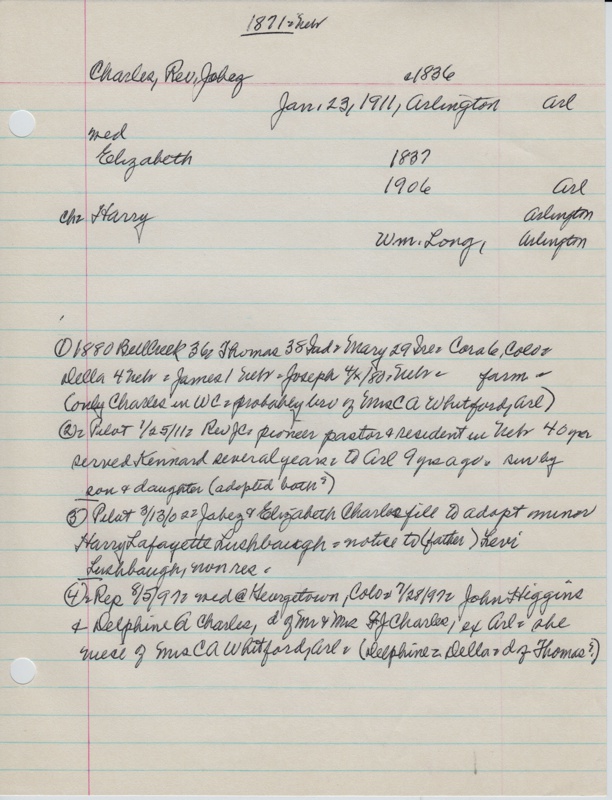 1871 = Nebr
Charles, Rev. Jabez c1836
Jan. 23, 1911, Arlington Arl
med
Elizabeth 1837
1906 Arl
ch = Harry Arlington
Wm. Long, Arlington
① 1880 BellCreek 36 = Thomas 38 Ind = Mary 29 Ire = Cora 6, Colo =
Della 4 Nebr = James 1 Nebr = Joseph 4/80, Nebr = farm =
(only Charles in WC = probably bro of Mrs CA Whitford, Arl)
② = Pilot 1/25/11 = Rev JC = pioneer pastor & resident in Nebr 40 yrs
served Kennard several years = to Arl 9 yrs ago = surv by
son & daughter (adopted both?)
③ Pilot 3/13/02 = Jabez & Elizabeth Charles file to adopt minor
Harry Lafayette Lushbaugh = notice to (father) Levi
Lushbaugh, non res =
④ = Rep 8/5/97 = med @ Georgetown, Colo = 7/28/97 = John Higgins
& Delphine A Charles, d of Mr & Mrs Charles, ex Arl = she
niece of Mrs CA Whitford, Arl = (Delphine = Della = d of Thomas?)